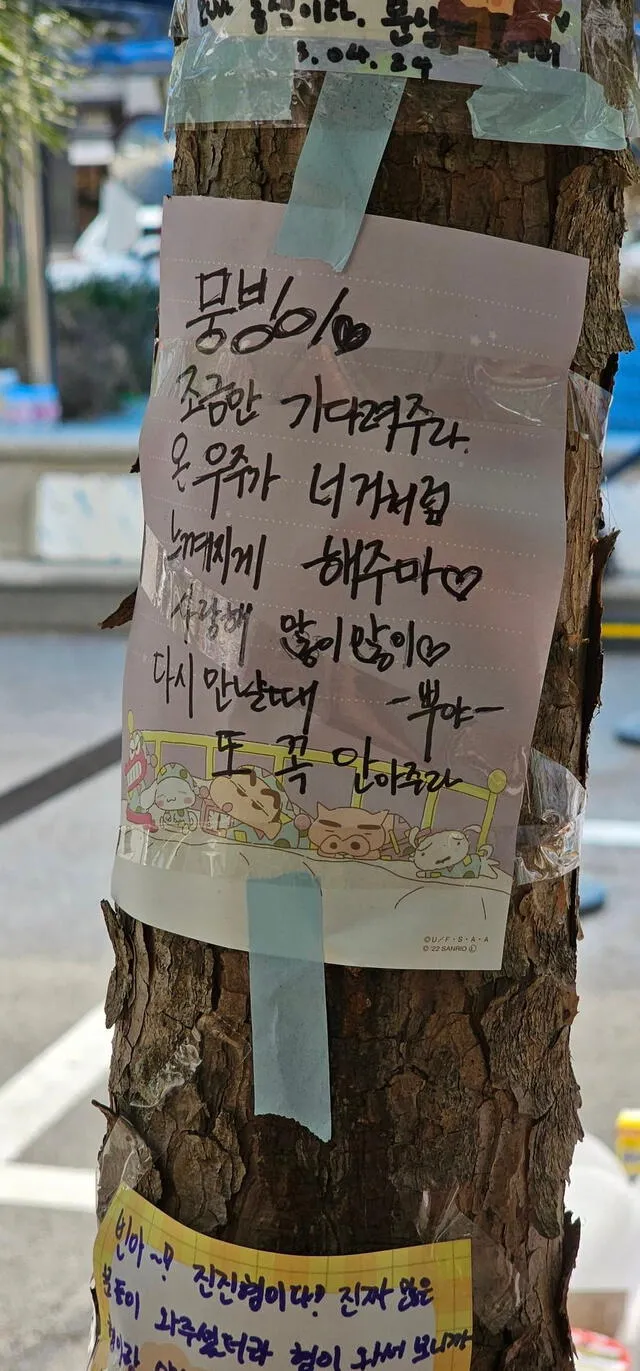 출신이다. 문빈
3.04.24
뭉빙이♥
조금만 기다려주라.
온 우주가 너거처럼
느껴지게 해주마♡
사랑해 많이많이♡
다시 만날때 -뿌야-
또 꼭 안아주라
©U/F·S·A·A
©'22 SANRIO Ⓛ
빈아~! 진진형이다! 진짜 많은
와주셨더라 형이 와서 보니까